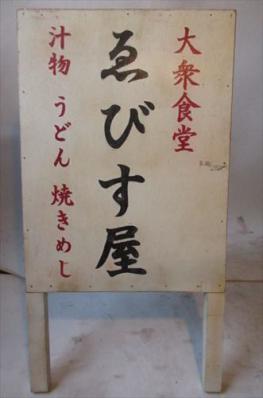 大衆食堂
ゑびす屋
汁物 うどん 焼きめし